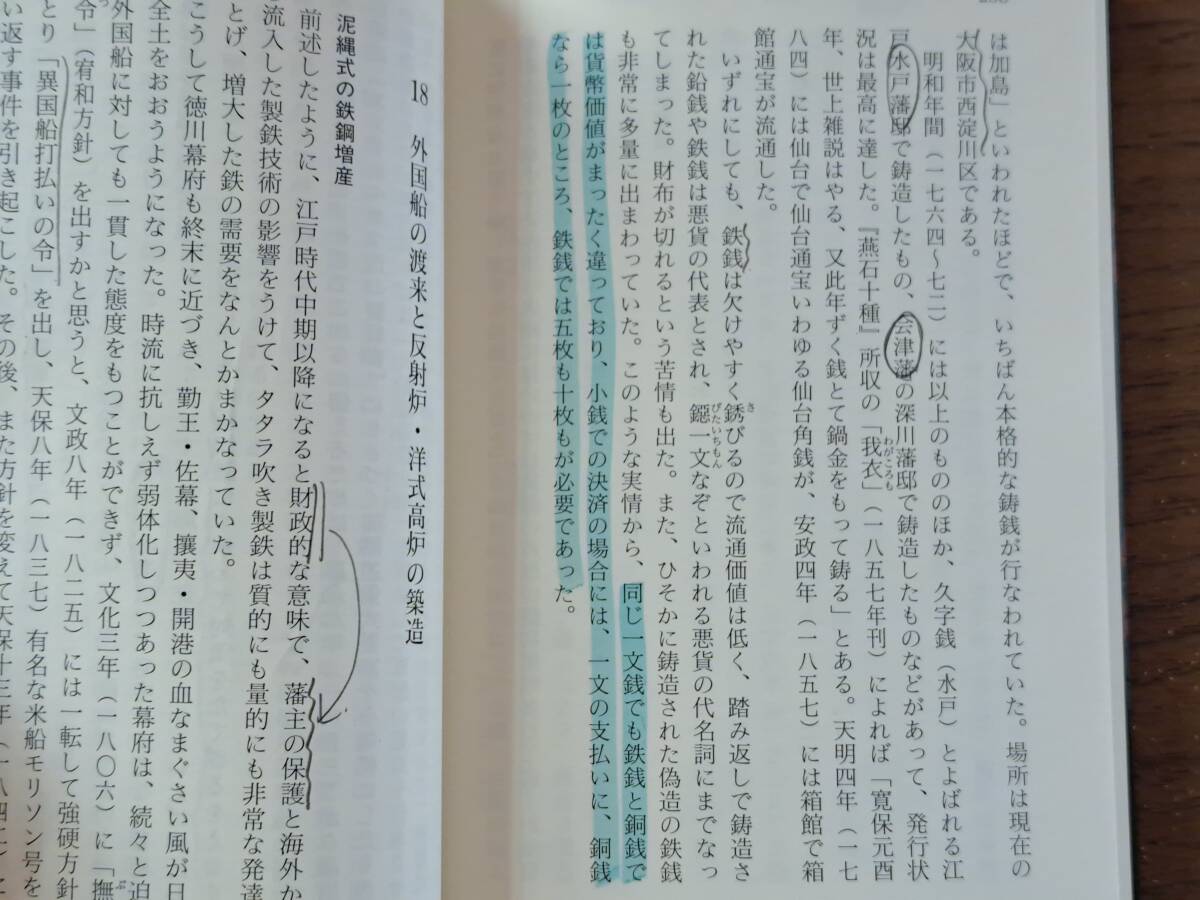 は加島」といわれたほどで、いちばん本格的な鋳銭が行なわれていた。場所は現在の
大阪市西淀川区である。
明和年間(一七六四〜七二)には以上のもののほか、久字銭(水戸)とよばれる江
戸水戸藩邸で鋳造したもの、会津藩の深川藩邸で鋳造したものなどがあって、発行状
況は最高に達した。『燕石十種』所収の「我衣」(一八五七年刊)によれば「寛保元酉
わがころも
年、世上雑説はやる、又此年ずく銭とて鍋金をもって鋳る」とある。天明四年(一七
八四)には仙台で仙台通宝いわゆる仙台角銭が、安政四年(一八五七)には箱館で箱
館通宝が流通した。
いずれにしても、鉄銭は欠けやすく銹びるので流通価値は低く、踏み返しで鋳造さ
さ
れた鉛銭や鉄銭は悪貨の代表とされ、鐚一文なぞといわれる悪貨の代名詞にまでなっ
びたいちもん
てしまった。財布が切れるという苦情も出た。また、ひそかに鋳造された偽造の鉄銭
も非常に多量に出まわっていた。このような実情から、同じ一文銭でも鉄銭と銅銭で
は貨幣価値がまったく違っており、小銭での決済の場合には、一文の支払いに、銅銭
なら一枚のところ、鉄銭では五枚も十枚もが必要であった。
18 外国船の渡来と反射炉・洋式高炉の築造
泥縄式の鉄鋼増産
前述したように、江戸時代中期以降になると財政的な意味で、藩主の保護と海外か
流入した製鉄技術の影響をうけて、タタラ吹き製鉄は質的にも量的にも非常な発達
とげ、増大した鉄の需要をなんとかまかなっていた。
こうして徳川幕府も終末に近づき、勤王・佐幕、攘夷・開港の血なまぐさい風が日
全土をおおうようになった。時流に抗しえず弱体化しつつあった幕府は、続々と迫
外国船に対しても一貫した態度をもつことができず、文化三年(一八〇六)に「撫
ぶ
令」(宥和方針)を出すかと思うと、文政八年(一八二五)には一転して強硬方針
とり「異国船打払いの令」を出し、天保八年(一八三七)有名な米船モリソン号を
い返す事件を引き起こした。その後、また方針を変えて天保十三年